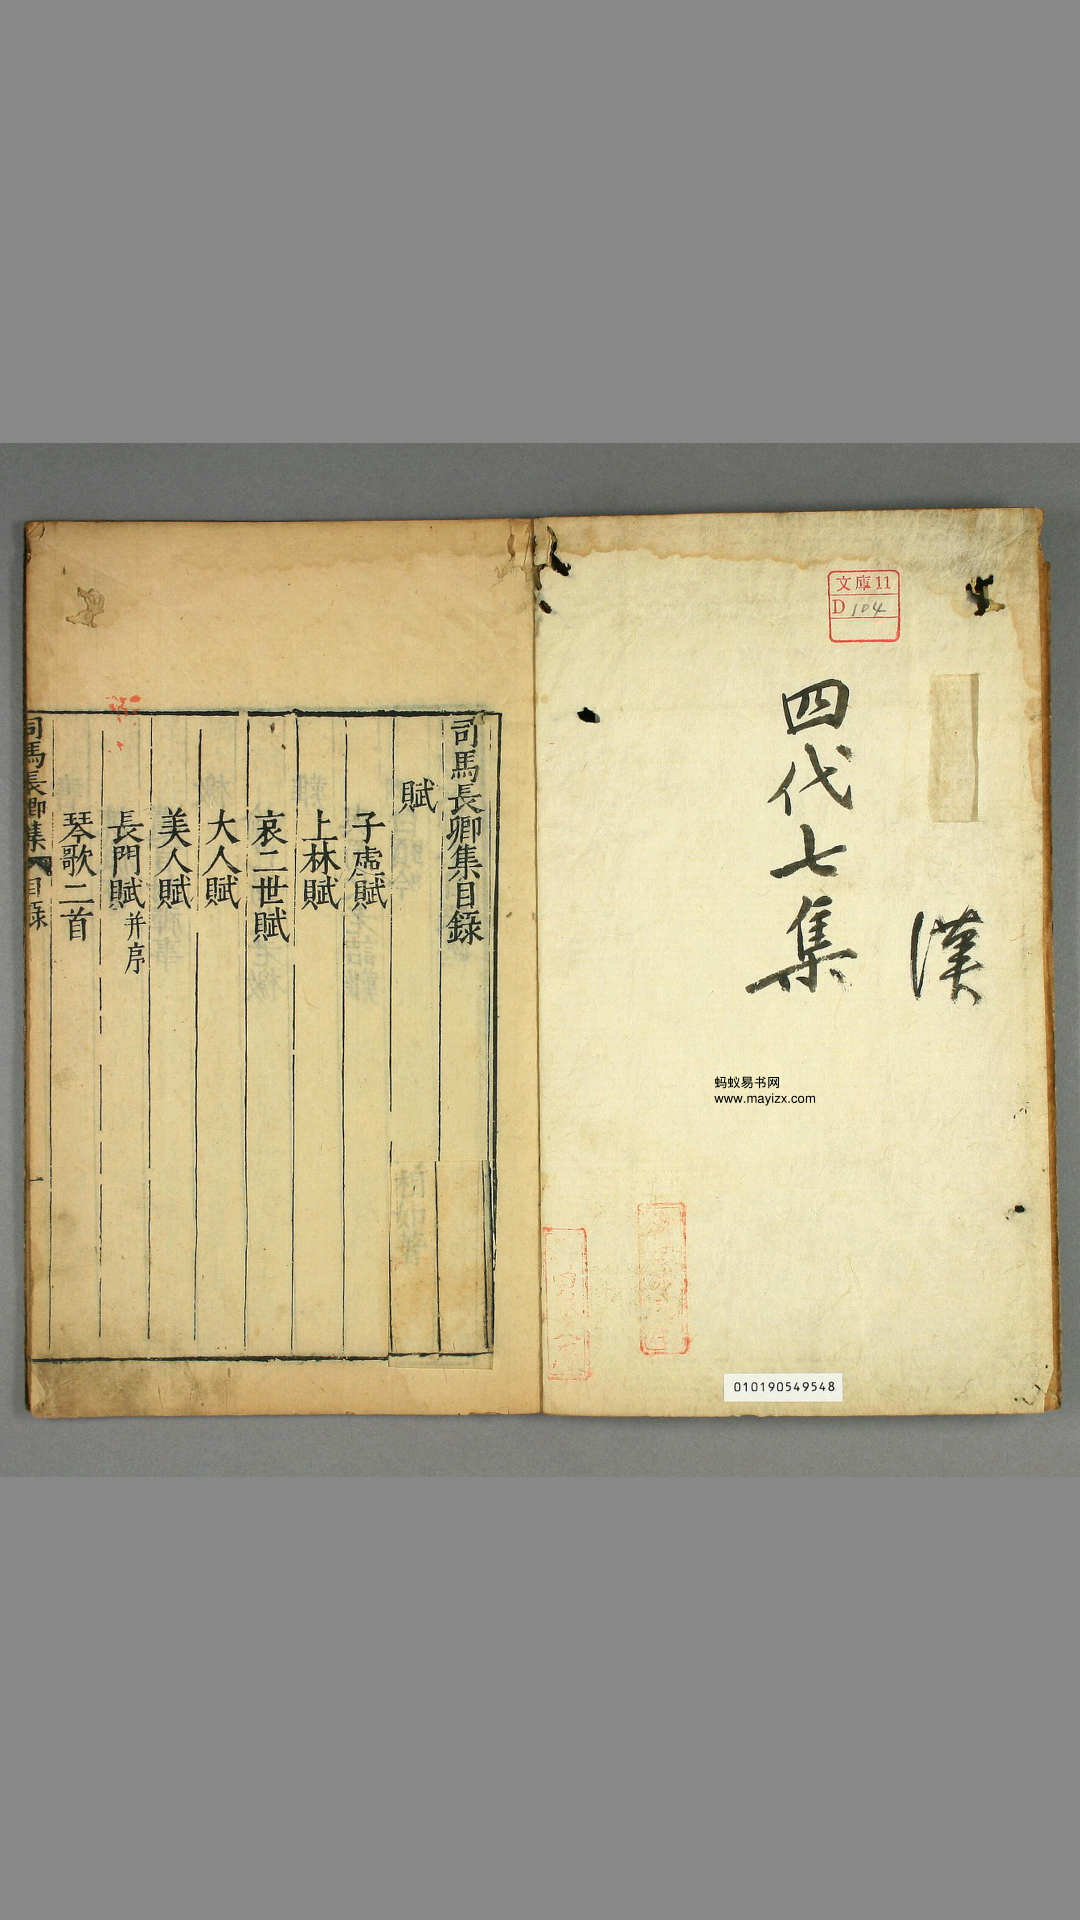 文庫11
D 104
漢
四代七集
蚂蚁易书网
www.mayizx.com
010190549548
司馬長卿集目錄
賦
子虛賦
上林賦
哀二世賦
大人賦
美人賦
長門賦并序
琴歌二首
司馬長卿集 目錄
一